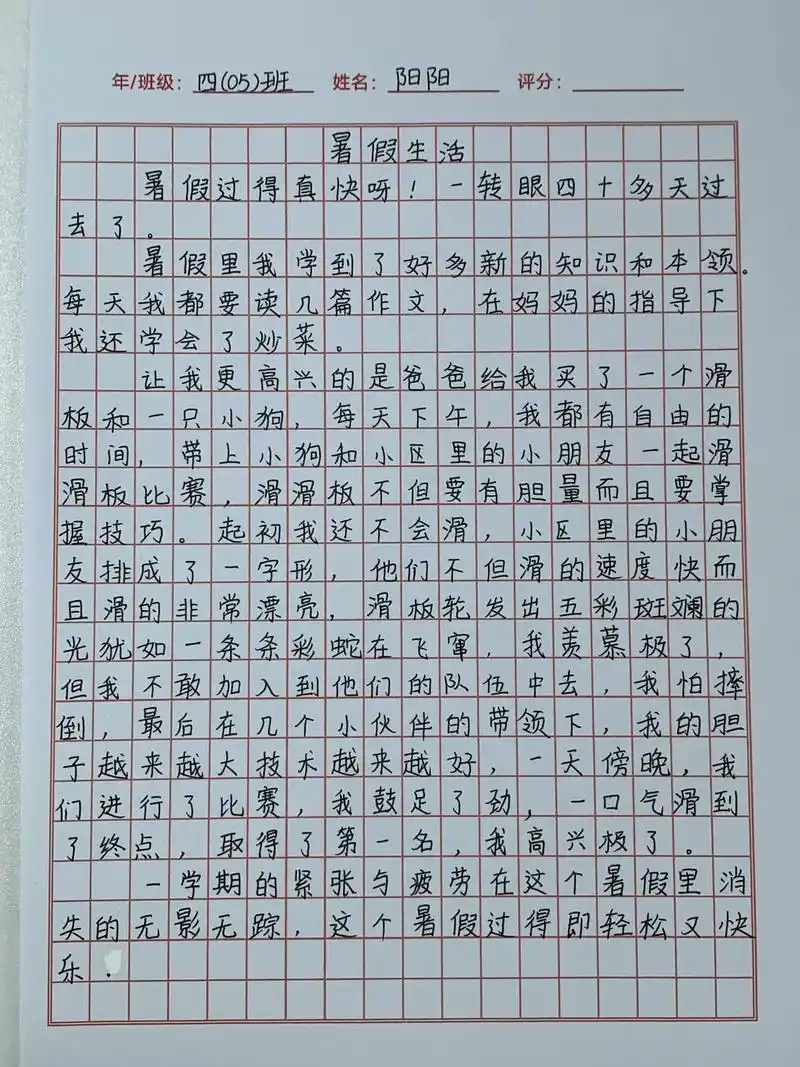 年/班级：四(05)班 姓名：阳阳 评分：
暑假生活
暑假过得真快呀！一转眼四十多天过
去了。
暑假里我学到了好多新的知识和本领。
每天我都要读几篇作文，在妈妈的指导下
我还学会了炒菜。
让我更高兴的是爸爸给我买了一个滑
板和一只小狗，每天下午，我都有自由的
时间，带上小狗和小区里的小朋友一起滑
滑板比赛，滑滑板不但要有胆量而且要掌
握技巧。起初我还不会滑，小区里的小朋
友排成了一字形，他们不但滑的速度快而
且滑的非常漂亮，滑板轮发出五彩斑斓的
光犹如一条条彩蛇在飞窜，我羡慕极了，
但我不敢加入到他们的队伍中去，我怕摔
倒，最后在几个小伙伴的带领下，我的胆
子越来越大技术越来越好，一天傍晚，我
们进行了比赛，我鼓足了劲，一口气滑到
了终点，取得了第一名，我高兴极了。
一学期的紧张与疲劳在这个暑假里消
失的无影无踪，这个暑假过得即轻松又快
乐.